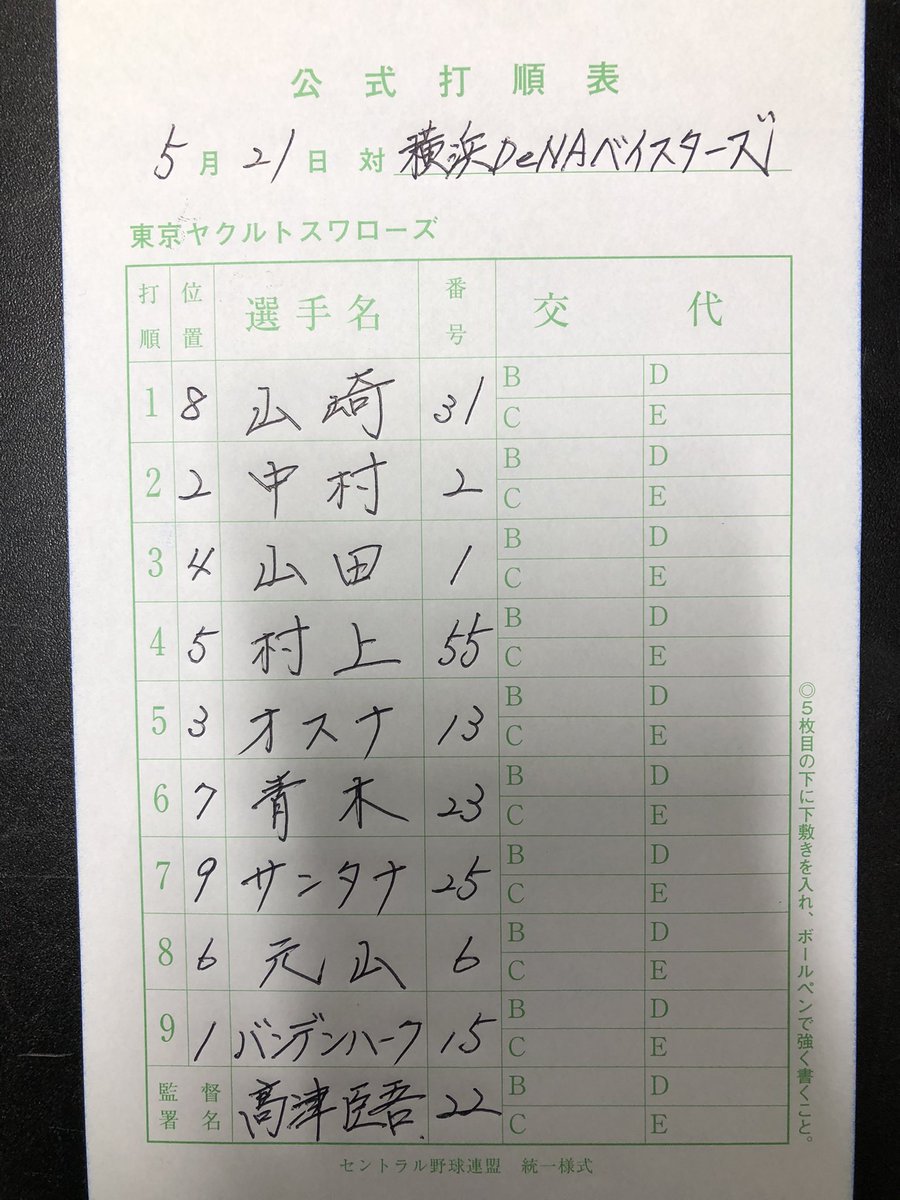 公式打順表
5月21日 対 横浜DeNAベイスターズ
東京ヤクルトスワローズ
打順 位置 選手名 番号 交代
1 8 山崎 31 B D C E
2 2 中村 2 B D C E
3 4 山田 1 B D C E
4 5 村上 55 B D C E
5 3 オスナ 13 B D C E
6 7 青木 23 B D C E
7 9 サンタナ 25 B D C E
8 6 元山 6 B D C E
9 1 バンデンハーク 15 B D C E
監督署名 高津臣吾 22 B D C E
セントラル野球連盟 統一様式
◎5枚目の下に下敷きを入れ、ボールペンで強く書くこと。